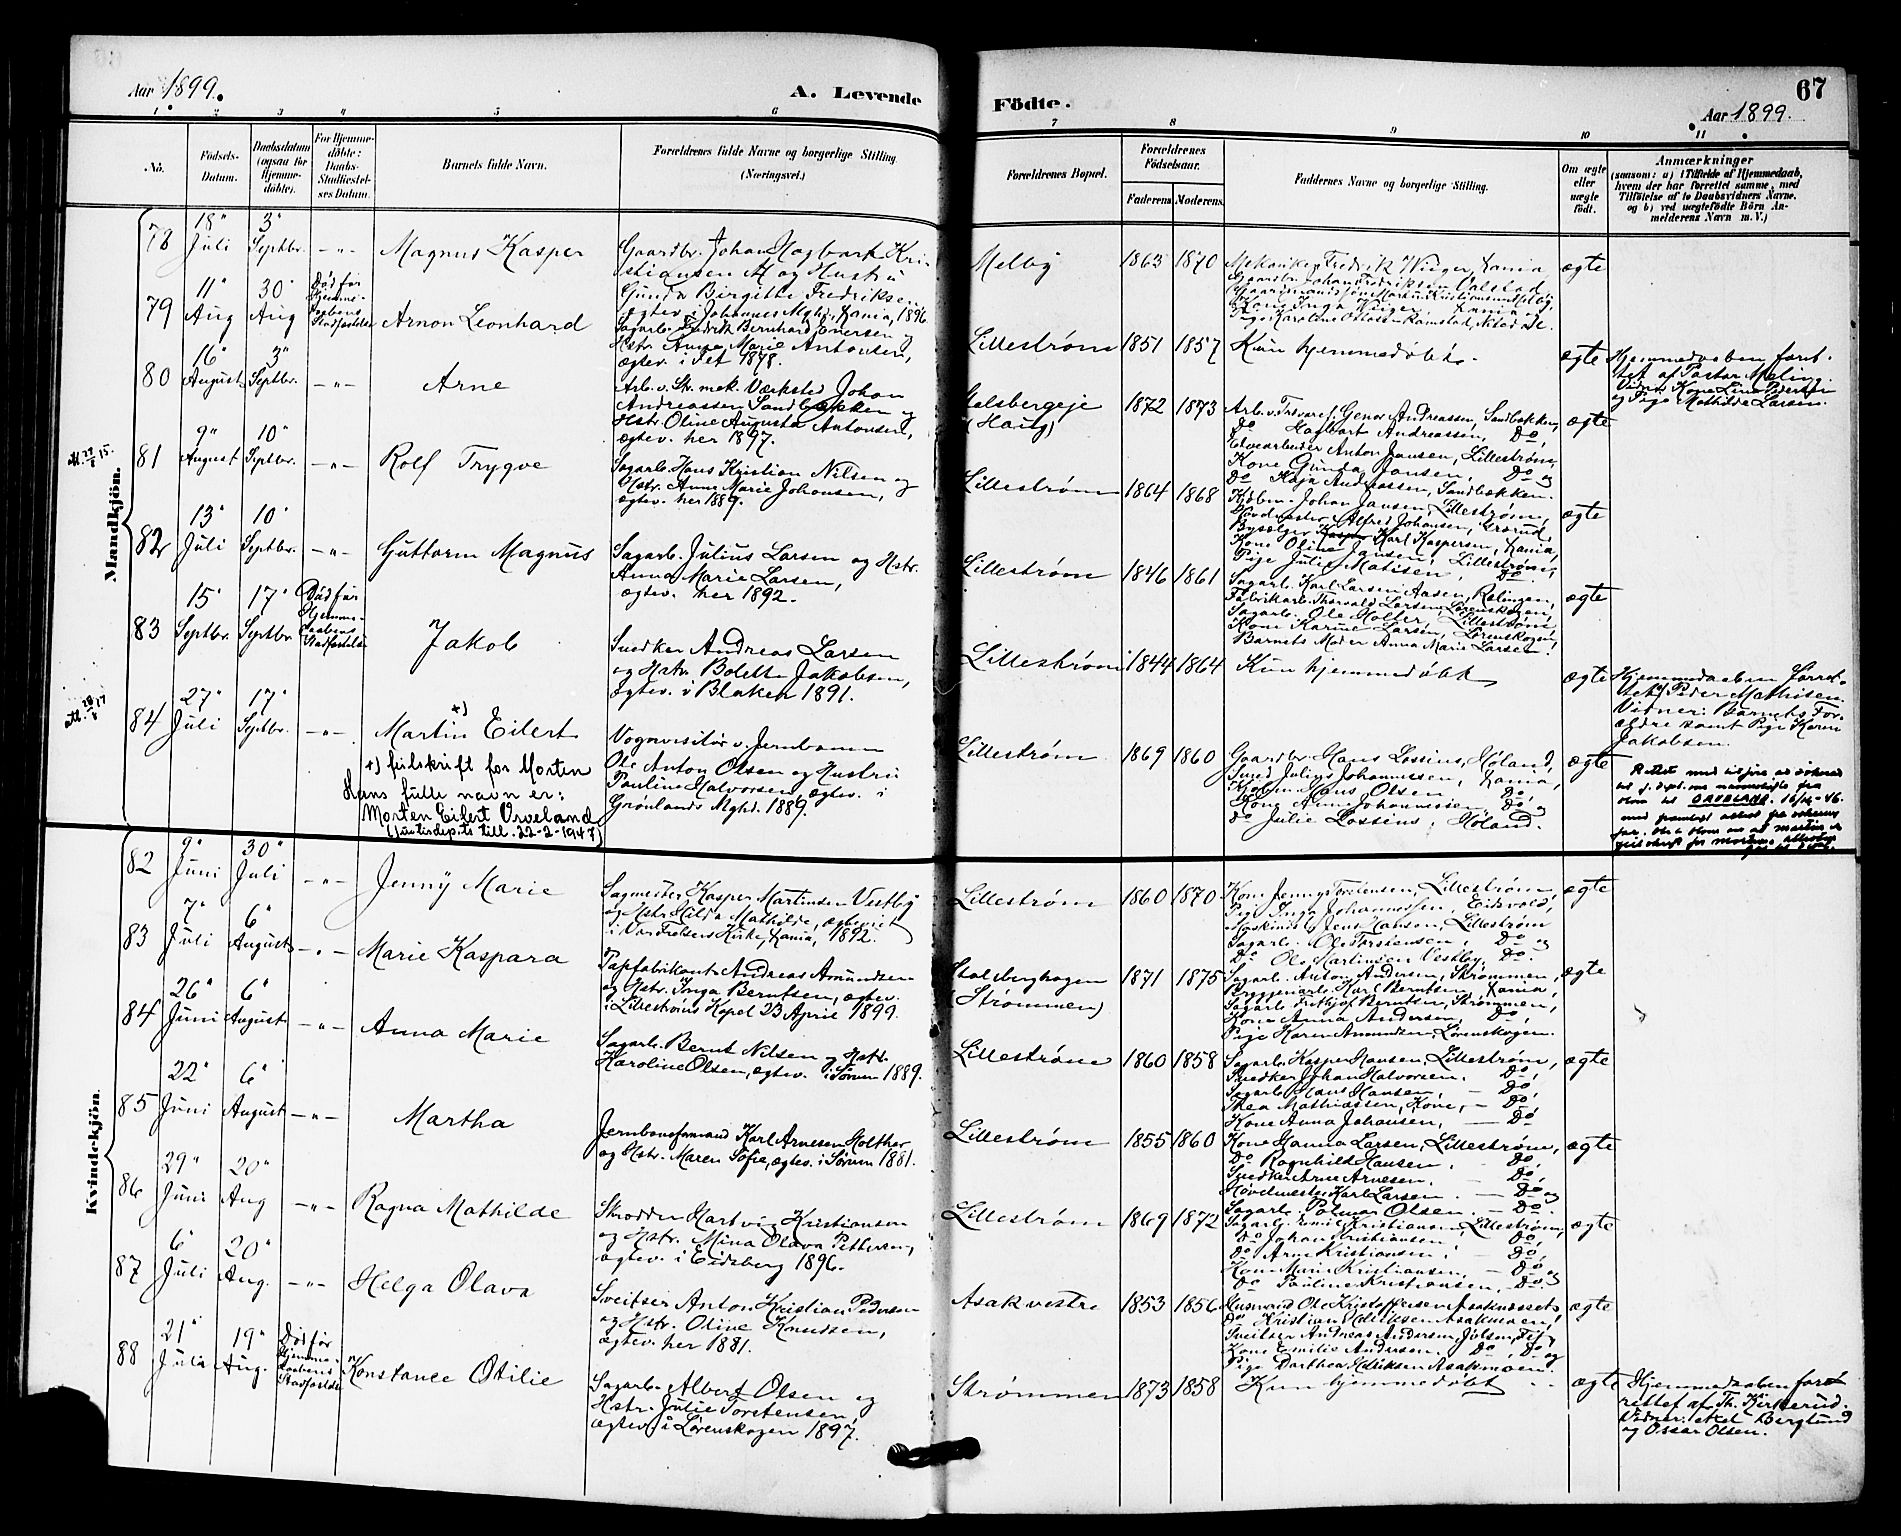 Aar 1899.
A. Levende
Födte.
67
Aar 1899.
1 2 3 4 5 6
7 8 9 10 11
No.
Födsels-
Datum.
Daabsdatum
(ogsaa for
Hjemme-
döbte).
For Hjemme-
döbte:
Daabs-
Stadfæstel-
ses Datum.
Barnets fulde Navn.
Forældrenes fulde Navne og borgerlige Stilling
(Næringsvei.)
Forældrenes Bopæl.
Forældrenes
Födselsaar.
Faderens Moderens
Faddernes Navne og borgerlige Stilling.
Om ægte
eller
uægte
födt.
Anmærkninger
(saasom: a) i Tilfælde af Hjemmedaab,
hvem der har forrettet samme, med
Tilföielse af to Daabsvidners Navne,
og b) ved uægtefödte Börn An-
melderens Navn m. V.)
Mandkjön.
78
18" Juli
3" Septbr.
Magnus Kasper
Gaardbr. Johan Hagbart Kri-
stiansen og Hustru
Gunda Birgitte Fredriksen,
ægtev. i Johannes Mghd., Xania, 1896.
Melby
1863 1870
Mekaniker Fredrik Winger, Xania,
Gaardbr. Johan Fredriksen Valstad,
ægte
79
11" Aug
30" Aug
Död før
Hjemme-
daabens
Stadfæstelse
Arnon Leonhard
Sagarb. Fredrik Bernhard Iversen og
Hstr. Anna Marie Antonsen,
ægtev. i Fet 1878.
Lillestrøm
1851 1857
Kun hjemmedøbt.
ægte
Hjemmedaaben forret-
tet af Pastor Meling
Vidner: Kone Lina Pedersen
og Pige Mathilde Larsen.
80
16" August
3" Septbr.
Arne
Arb. v. Str. mek. Værksted Johan
Andreassen Sandbækken og
Hstr. Oline Augusta Antonsen,
ægtev. her 1897.
Stalsbergeje
(Haug)
1872 1873
Do Hagbart Andreassen, Do,
Elvearbeider Anton Jansen, Lillestrøm,
Kone Gunda Jansen, Do og
Do Kaja Andreassen, Sandbækken.
ægte
81
9" August
10" Septbr.
Rolf Trygve
Sagarb. Hans Kristian Nilsen og
Hstr. Anne Marie Johansen,
ægtev. her 1889.
Lillestrøm
1864 1868
Kjøbm. Johan Jansen, Lillestrøm,
Høvlmester Alfred Johansen, Grorud,
Bysælger Karl Kaspersen, Xania,
Kone Oline Jansen, Lillestrøm,
Pige Julie Matisen, Do.
ægte
82
13" Juli
10" Septbr.
Guttorm Magnus
Sagarb. Julius Larsen og Hstr.
Anna Marie Larsen,
ægtev. her 1892.
Lillestrøm
1846 1861
Sagarb. Karl Larsen Aasen, Rælingen,
Fabrikarb. Thorvald Larsen, Lørenskogen,
Sagarb. Ole Holter, Lillestrøm,
Kone Karine Larsen, Lørenskogen,
Barnets Moder Anna Marie Larsen.
ægte
83
15" Septbr.
17" Septbr.
Død før
Hjemme-
daabens
Stadfæstelse
Jakob
Snedker Andreas Larsen
og Hstr. Bolette Jakobsen,
ægtev. i Blaker 1891.
Lillestrøm
1844 1864
Kun hjemmedøbt
ægte
Hjemmedaaben forret-
tet af Peder Mathisen.
Vidner: Barnets For-
ældre samt Pige Karen
Jakobsen.
84
27" Juli
17" Septbr.
Martin Eilert +)
+) feilskrift for Morten
Hans fulle navn er:
Morten Eilert Orveland
(Justisdep.ts till. 22-2-1947)
Vognvisitør v. Jernbanen
Ole Anton Olsen og Hustru
Pauline Halvorsen, ægtev. i
Grønlands Mghd. 1889.
Lillestrøm
1869 1860
Gaardbr. Hans Lossius, Høland,
Smed Julius Johannessen, Xania,
Kjøbm. Hans Olsen, Do,
Kone Anna Johannessen, Do og
Do Julie Lossius, Høland.
ægte
Kvindekjön.
82
9" Juni
30" Juli
Jenny Marie
Sagmester Kasper Martinsen Vestby
og Hstr. Hilda Mathilde, ægteviet
i Vor Frelsers Kirke, Xania, 1892.
Lillestrøm
1860 1870
Kone Jenny Torstensen, Lillestrøm,
Pige Inga Johannessen, Eidsvold,
Maskinist Jens Hansen, Lillestrøm
Sagarb. Ole Torstensen, Do og
Do Ole Martinsen Vestby, Do.
ægte
83
7" Juli
6" August
Marie Kaspara
Papfabrikant Andreas Amundsen
og Hstr. Inga Berntsen, ægtev.
i Lillestrøms Kapel 23 April 1899.
Stalsberghagen
(Strømmen)
1871 1875
Sagarb. Anton Andersen, Strømmen,
Bryggeriarb. Karl Berntsen, Xania,
Sagarb. Fridtjof Berntsen, Strømmen,
Kone Anna Andersen, Do,
Pige Karen Amundsen, Lørenskogen.
ægte
84
26" Juni
6" August
Anna Marie
Sagarb. Bernt Nilsen og Hstr.
Karoline Olsen, ægtev. i Sørum 1889.
Lillestrøm
1860 1858
Sagarb. Kasper Hansen, Lillestrøm,
Snedker Johan Halvorsen, Do,
Sagarb. Hans Hansen, — Do,
Thea Mathiassen, Kone, — Do,
Kone Anna Johansen, — Do
ægte
85
22" Juni
6" August
Martha
Jernbaneformand Karl Arnesen Holther
og Hstr. Maren Sofie, ægtev. i Sørum 1881.
Lillestrøm
1855 1860
Kone Hanna Larsen, Lillestrøm,
Do Ragnhild Hansen, Do,
Snedker Arne Arnesen, — Do,
Høvelmester Karl Larsen, — Do og
Sagarb. Palmar Olsen, — Do.
ægte
86
29" Juni
20" Aug
Ragna Mathilde
Skrædder Hartvig Kristiansen
og Hstr. Mina Olava Pettersen,
ægtev. i Eidsberg 1896.
Lillestrøm
1869 1872
Sagarb. Emil Kristiansen, Lillestrøm,
Do Johan Kristiansen, Do,
Do Arne Kristiansen, — Do,
Kone Marie Kristiansen, — Do og
Do Pauline Kristiansen, — Do.
ægte
87
6" Juli
20" Aug.
Helga Olava
Sveitser Anton Kristian Pedersen
og Hstr. Oline Knudsen,
ægtev. her 1881.
Asak vestre
1853 1856
Husmand Ole Kristoffersen Asakvesset,
Do Kristian Eriksen Asakmoen,
Sveitser Andreas Andersen, Jølsen, Fet,
Kone Emilie Andersen, Do, Do og
Pige Dorthea Eriksen Asakmoen.
ægte
88
21" Juli
19" Aug.
Død før
Hjemme-
daabens
Stadfæstelse
Konstance Otilie
Sagarb. Albert Olsen og
Hstr. Julie Torstensen,
ægtev. i Lørenskogen 1897.
Strømmen
1873 1858
Kun hjemmedøbt
ægte
Hjemmedaaben for-
rettet af Th. Kirkerud.
Vidner: Axel Berglund
og Oscar Olsen.